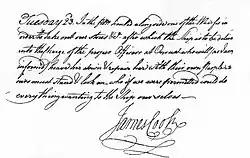 Tuesday 23. In the fore noon hauled along side one of the Wharfs in
order to take out our stores &c after which the Ship is to be deliver'd
into the charge of the proper Officers at Onrust who will, as I am
informed, heave her down & repair her with their own people &
ours must stand & look on, who if we were permitted could do
every thing wanting to the Ship our selves
James Cook